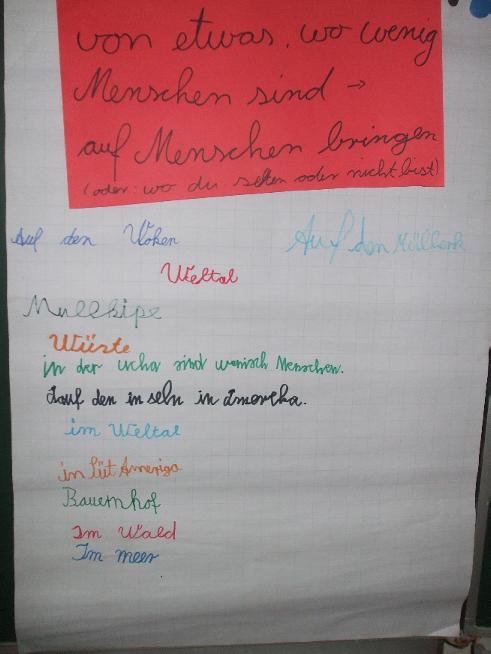 von etwas, wo wenig
Menschen sind →
auf Menschen bringen
(oder: wo du selten oder nicht bist)
Auf den Woken
Auf den Müllberk
Weltal
Mullkipe
Wüste
in der ucha sind wenisch Menschen.
auf den inseln in Amerika.
im Weltal
in süt Ameriga
Bauernhof
Im Wald
Im meer